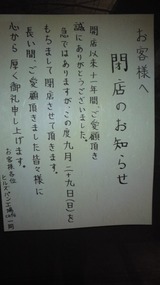 お客様へ
閉店のお知らせ
開店以来十一年間、ご愛顧頂き
誠にありがとうございました。
急ではありますが、この度九月二十九日(日)を
もちまして閉店させて頂きます。
長い間、ご愛顧頂きました皆々様に
心から厚く御礼申し上げます。
お客様各位